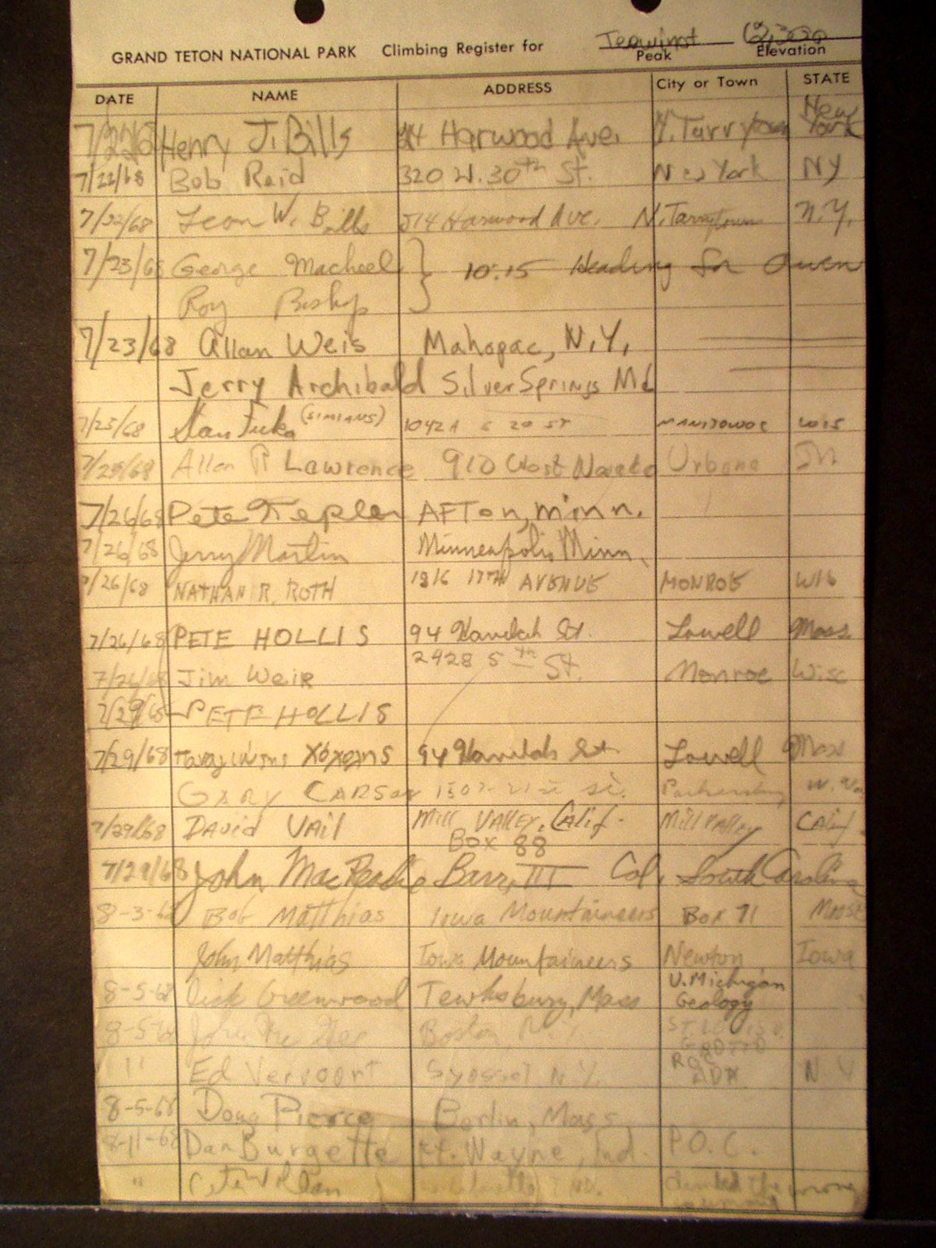 GRAND TETON NATIONAL PARK Climbing Register for Teewinot
Peak Elevation
DATE NAME ADDRESS City or Town STATE
Henry J. Bills Harwood Ave. N. Tarrytown New York
7/22/68 Bob Reid 320 W. 30th St. New York NY
7/22/68 Leon W. Bills 514 Harwood Ave. N. Tarrytown N.Y.
7/23/68 George Machael } 10:15 Heading for Owen
Roy Bishop
7/23/68 Allan Weis Mahopac, N.Y.
Jerry Archibald Silver Springs Md
7/25/68 Stan (SIMIANS) 1042 A S 20 ST MANITOWOC WIS
7/25/68 Allen P Lawrence 910 West Urbana
7/26/68 Pete Tepler AFTon, minn.
7/26/68 Jerry Martin Minneapolis, Minn.
7/26/68 NATHAN R. ROTH 17TH AVENUE MONROE WIS
7/26/68 PETE HOLLIS 94 St. Lowell Mass
7/26/68 Jim Weir 2428 5th St. Monroe Wisc
PETE HOLLIS
7/29/68 94 St Lowell Mass
GARY CARSON 21st St. W. Va
7/29/68 David Vail Mill Valley, Calif. Mill Valley Calif.
Box 88
7/29/68 John Barr, III Col. South Carolina
8-3-68 Bob Matthias Iowa Mountaineers Box 71
John Matthias Iowa Mountaineers Newton Iowa
8-5-68 Dick Greenwood Tewksbury, Mass U. Michigan
Geology
8-5-68 John Boston
GROTTO
" Ed Vervoort Syosset N.Y. N Y
8-5-68 Doug Pierce Berlin, Mass
8-11-68 Dan Burgette Ft. Wayne, Ind. P.O.C.
" climbed the wrong